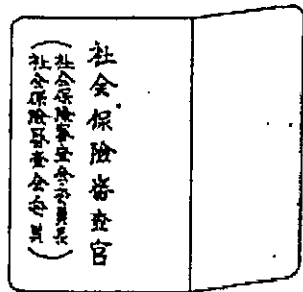 社会保險審査官
（社会保險審査会委員長
社会保險審査会委員）